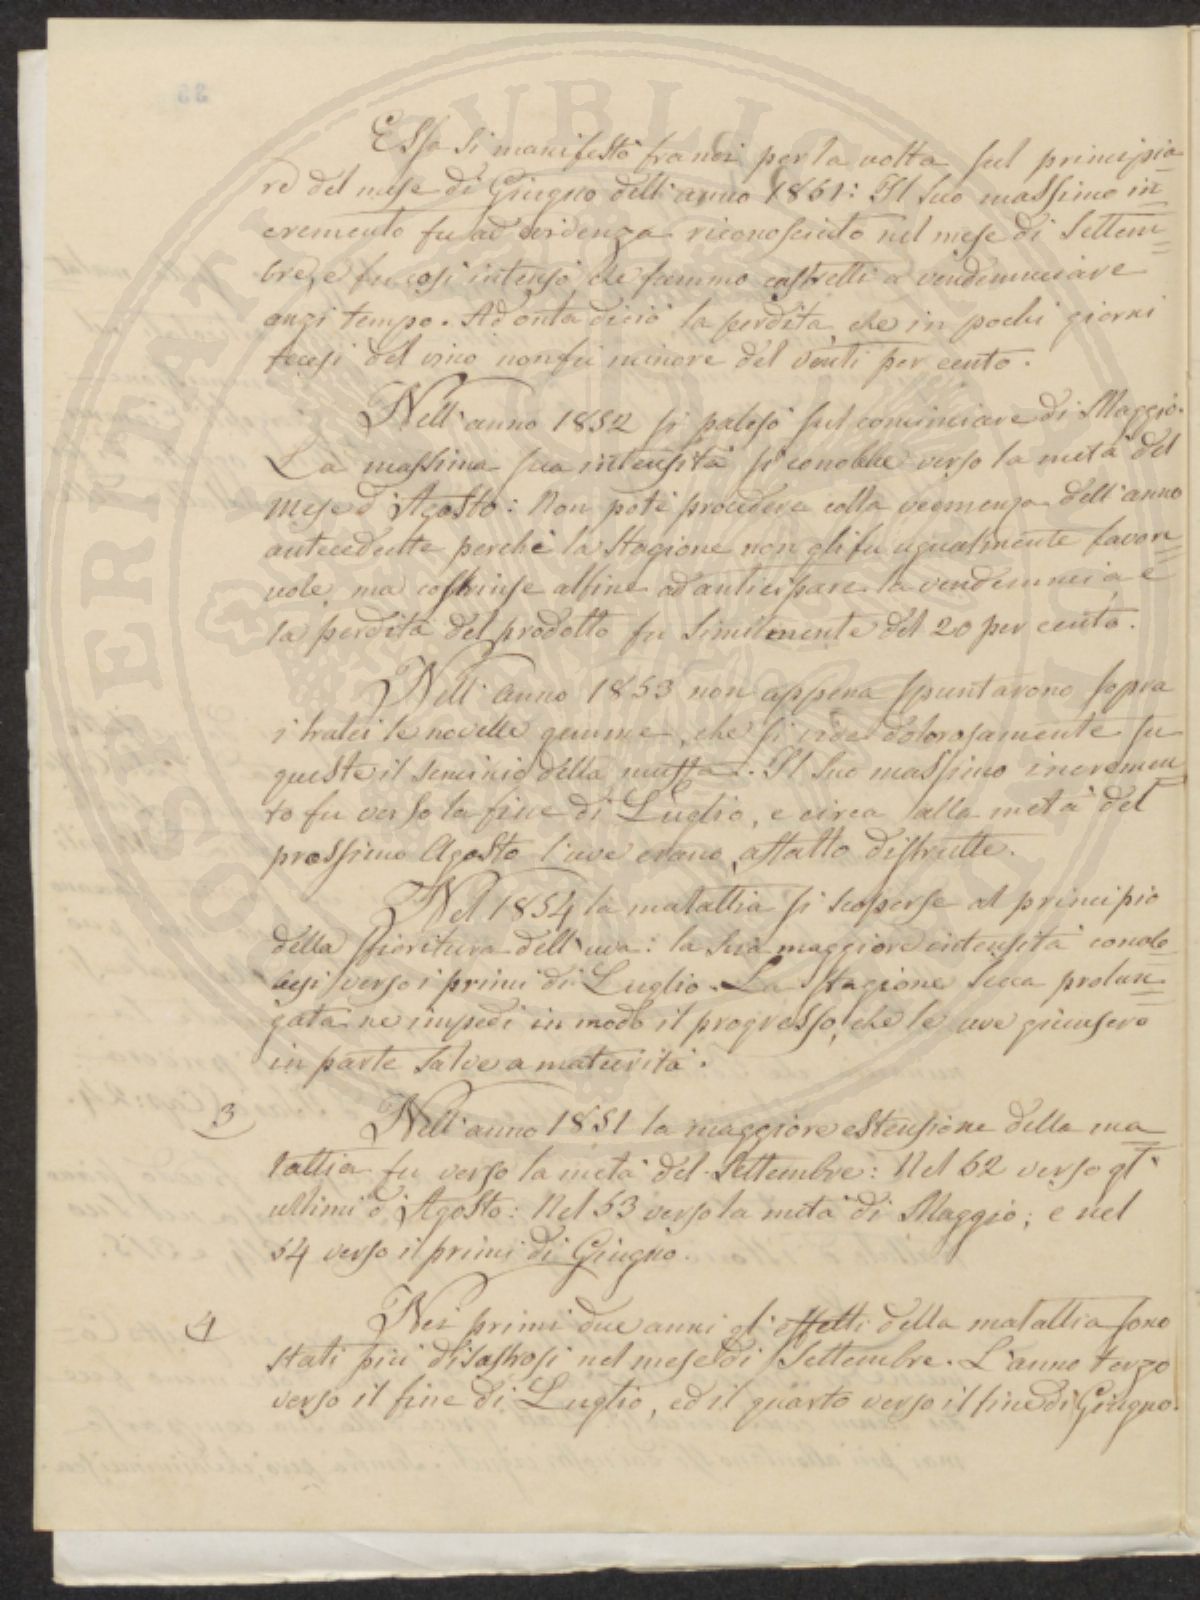 Essa si manifestò fra noi per la volta sul principia=
re del mese di Giugno dell'anno 1851: Il suo massimo in=
cremento fu ad evidenza riconosciuto nel mese di Settem=
bre, e fu così intenso che fummo costretti a vendemmiare
anzi tempo. Ad onta di ciò la perdita che in pochi giorni
fecesi del vino non fu minore del venti per cento.
Nell'anno 1852 si palesò sul cominciare di Maggio.
La massima sua intensità si conobbe verso la metà del
mese d'Agosto: Non potè procedere colla veemenza dell'anno
antecedente perchè la stagione non gli fu ugualmente favore=
vole, ma costrinse alfine ad anticipare la vendemmia, e
la perdita del prodotto fu similmente del 20 per cento.
Nell'anno 1853 non appena spuntavono sopra
i tralci le novelle gemme, che si vide dolorosamente su
queste il seminio della muffa. Il suo massimo incremen=
to fu verso la fine di Luglio, e circa alla metà del
prossimo Agosto l'uve erano affatto distrutte.
Nel 1854 la malattia si scoperse al principio
della fioritura dell'uva: la sua maggiore intensità conob=
besi verso i primi di Luglio. La stagione secca prolun=
gata ne impedì in modo il progresso, che le uve giunsero
in parte salve a maturità.
3 Nell'anno 1851 la maggiore estensione della ma=
lattia fu verso la metà del Settembre: Nel 52 verso gl'
ultimi d'Agosto: Nel 53 verso la metà di Maggio; e nel
54 verso i primi di Giugno.
4 Nei primi due anni gl'effetti della malattia sono
stati più disastrosi nel mese di Settembre. L'anno terzo
verso il fine di Luglio, ed il quarto verso il fine di Giugno.